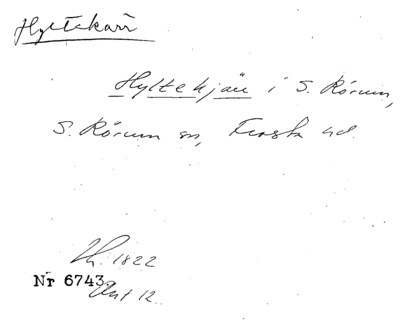 Hyltekärr
Hyltekjärr i S. Rörum,
S. Rörum sn, Frosta hd.
1822
Nr 6743
Akt 12.